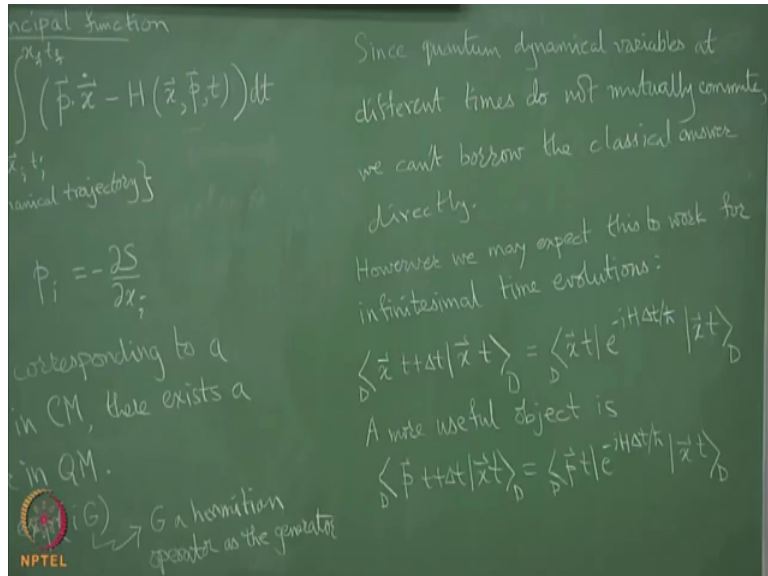 ncipal function
x_f t_f
∫ (p⃗·ẋ⃗ − H(x⃗, p⃗, t)) dt
x⃗_i t_i
namical trajectory}
p_i = −∂S/∂x_i
corresponding to a
in CM, there exists a
in QM.
iG) → G a hermitian
operator as the generator
NPTEL
Since quantum dynamical variables at
different times do not mutually commute,
we can't borrow the classical answer
directly.
However we may expect this to work for
infinitesimal time evolutions:
_D⟨x⃗ t+Δt|x⃗ t⟩_D = _D⟨x⃗ t| e^{-iHΔt/ħ} |x⃗ t⟩_D
A more useful object is
_D⟨p⃗ t+Δt|x⃗ t⟩_D = _D⟨p⃗ t| e^{-iHΔt/ħ} |x⃗ t⟩_D